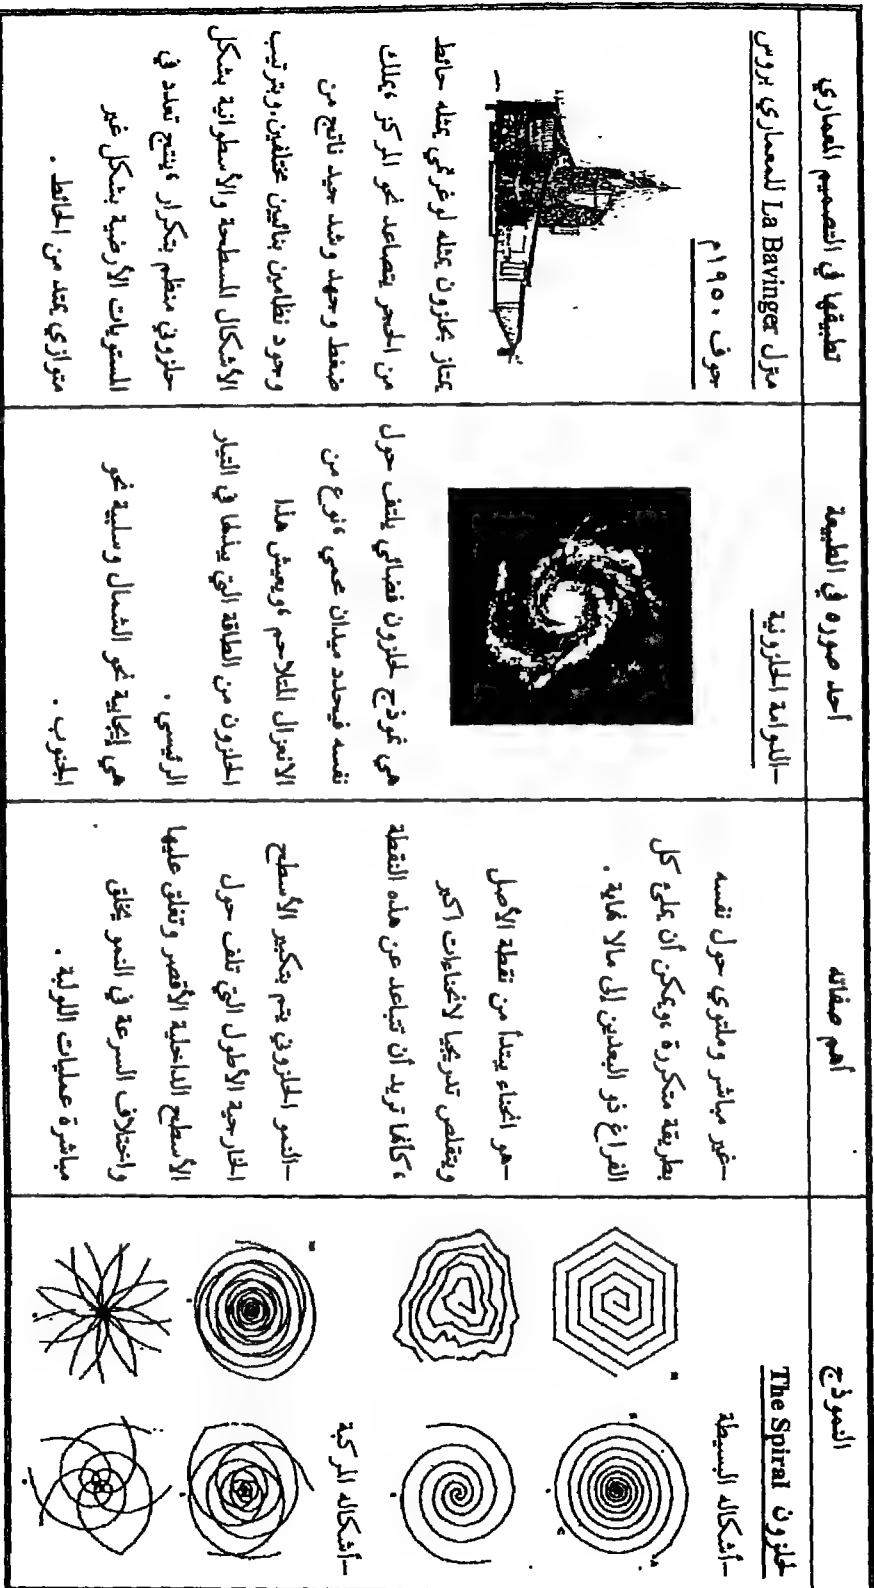 النموذج
أهم صفاته
أحد صوره في الطبيعة
تطبيقها في التصميم المعماري
لحلزون The Spiral
-أشكاله البسيطة
-أشكاله المركبة
-غير مباشر وملتوي حول نفسه
بطريقة متكررة ،ويمكن أن يملئ كل
الفراغ ذو البعدين إلى مالا نهاية .
-هو انحناء يبتدأ من نقطة الأصل
ويتقلص تدريجيا لانحناءات اكبر
،كأنها تريد أن تتباعد عن هذه النقطة
-النمو الحلزوني يتم بتكبير الأسطح
الخارجية الأطول التي تلف حول
الأسطح الداخلية الأقصر وتغلق عليها
واختلاف السرعة في النمو يخلق
مباشرة عمليات اللولبة .
-الدوامة الحلزونية
هي نموذج لحلزون فضائي يلتف حول
نفسه فيحدد ميدان محمي ،نوع من
الانعزال المتلاحم ،ويعيش هذا
الحلزون من الطاقة التي يبذلها في التيار
الرئيسي .
هي إيجابية نحو الشمال وسلبية نحو
الجنوب .
منزل La Bavinger للمعماري بروس
جوف ١٩٥٠م
يمتاز بحلزون يمثله لوغرثمي يمثله حائط
من الحجر يتصاعد نحو المركز ،يملك
ضغط وجهد وشد جيد ناتج من
وجود نظامين بنائيين مختلفين،وبترتيب
الأشكال المسطحة والأسطوانية بشكل
حلزوني منظم بتكرار ،ينتج تعدد في
المستويات الأرضية بشكل غير
متوازي يمتد من الحائط .